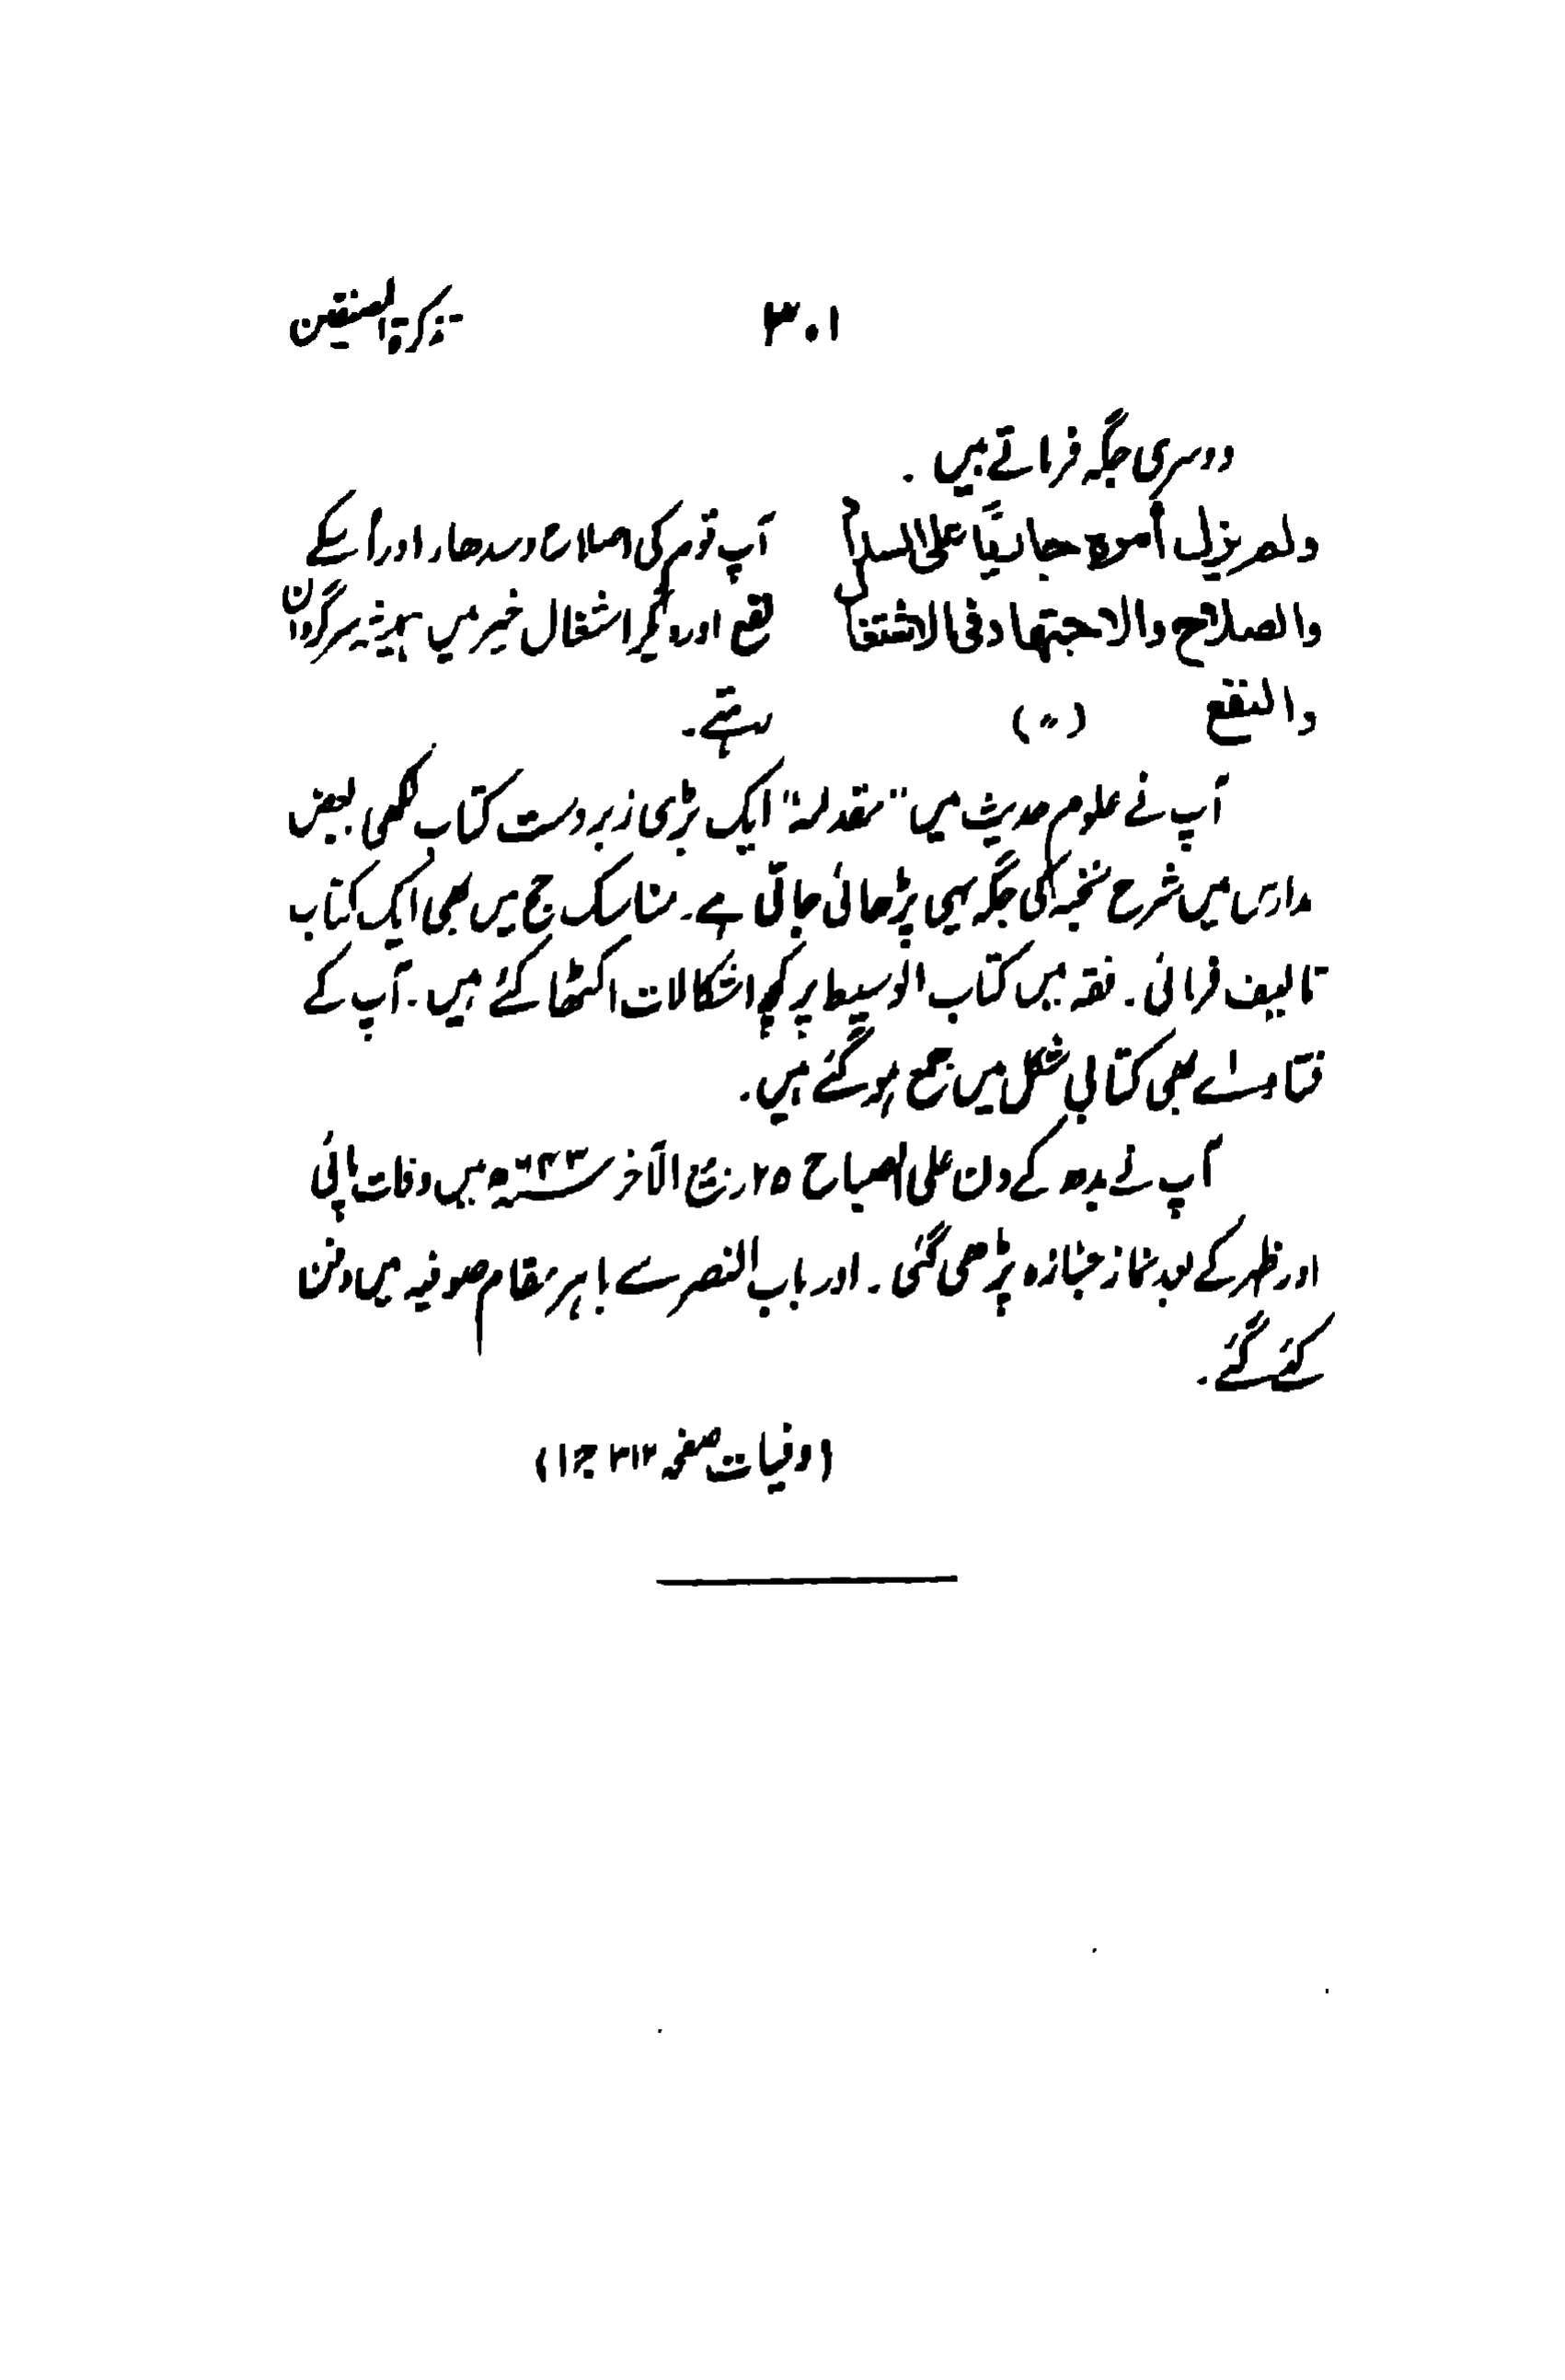 تذکرۃ المصنفین ۳۰۱
دوسری جگہ فرماتے ہیں ۔
ولم یزل أمره جاریًا علی السداد
والصلاح والاجتهاد فی الاشتغال
والنفع (〃)
آپ قوم کی اصلاح و سدھار اور اُسکے
نفع اور دیگر اشغال خیر میں ہمیشہ سرگرداں
رہتے ۔
آپ نے علوم حدیث میں "مقدمہ" ایک بڑی زبردست کتاب لکھی بعض
مدارس میں شرح نخبہ کی جگہ یہی پڑھائی جاتی ہے۔ مناسک حج میں بھی ایک کتاب
تالیف فرمائی ۔ فقہ میں کتاب الوسیط پر کچھ اشکالات اکٹھا کئے ہیں ۔ آپ کے
فتاوے بھی کتابی شکل میں جمع ہو گئے ہیں ۔
آپ نے بدھ کے دن علی الصباح ۲۵ ربیع الآخر ۶۴۳ھ میں وفات پائی
اور ظہر کے بعد نماز جنازہ پڑھی گئی ۔ اور باب النصر سے باہر مقام صوفیہ میں دفن
کئے گئے ۔
(وفیات صفحہ ۳۱۳ ج۱)